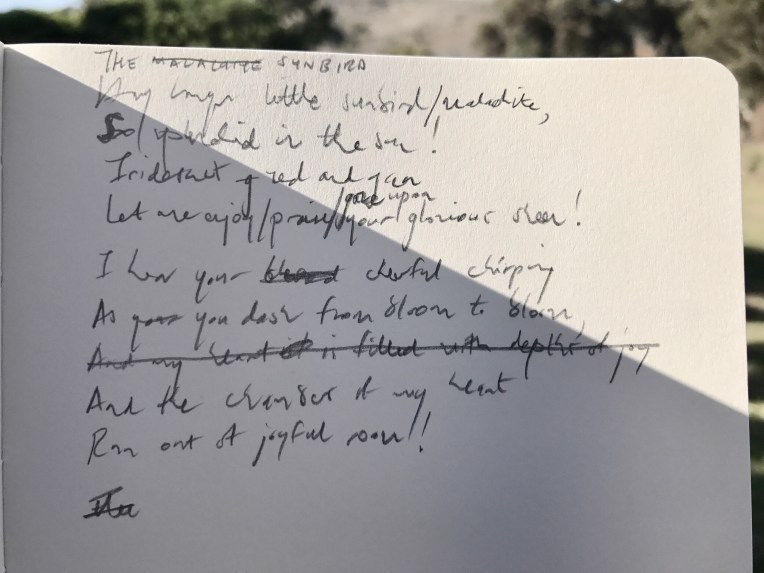 THE MALACHITE SUNBIRD
little sunbird/malachite,
So splendid in the sun!
Iridescent of red and green
Let me enjoy/praise/gaze upon your glorious sheen!
I hear your cheerful chirping
As your you dash from bloom to bloom,
And my heart is filled with depths of joy
And the chamber of my heart
Run out of joyful room!!